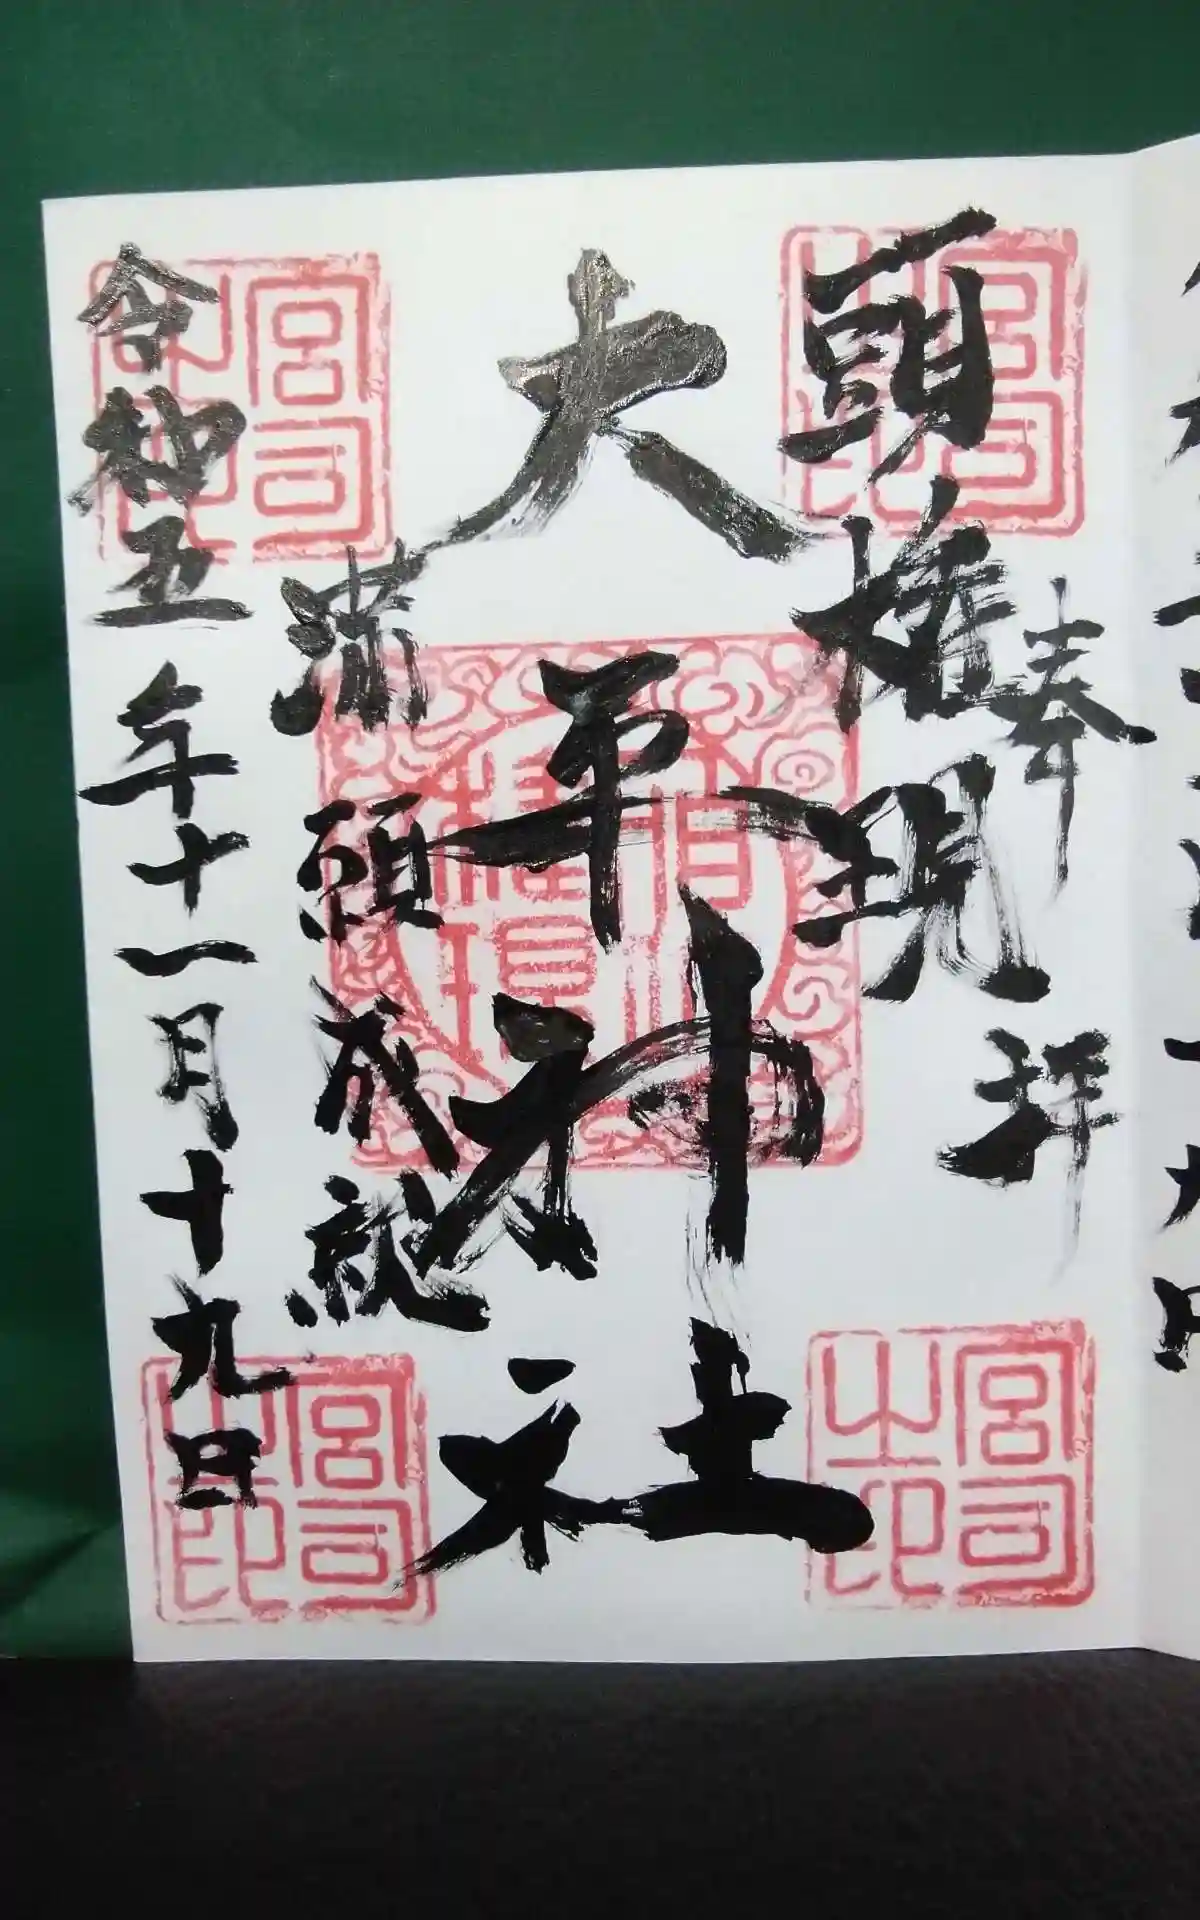 奉拝
頭権現
大平神社
満願成就
令和五年十一月十九日
宮司之印
宮司之印
宮司之印
宮司之印